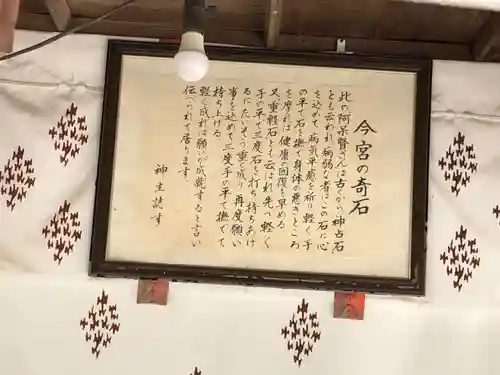 今宮の奇石
此の阿呆賢さんは古くから神占石
とも云われ病弱な者はこの石に心
を込めて病気平癒を祈り軽く手
の平で石を撫で身体の悪きところ
を摩れば健康の回復を早める
又重軽石とも云はれ先づ軽く
手の平で三度石を打ち持ち上げ
るにたいそう重く成り再度願い
事を込めて三度手の平で撫でて
持ち上げる
軽く成れば願いが成就すると言い
伝へられて居ります